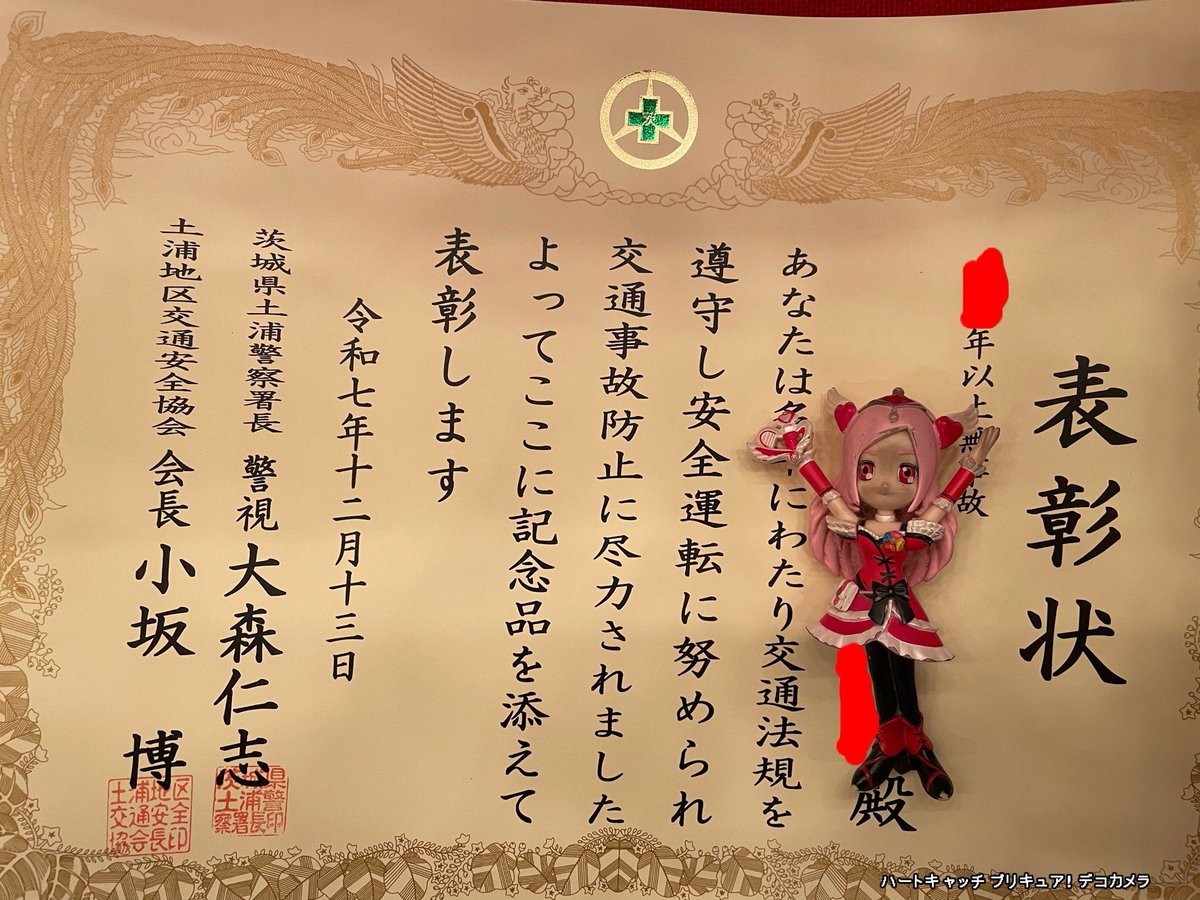 表彰状
年以上無事故
殿
あなたは多年にわたり交通法規を
遵守し安全運転に努められ
交通事故防止に尽力されました
よってここに記念品を添えて
表彰します
令和七年十二月十三日
茨城県土浦警察署長 警視 大森仁志
土浦地区交通安全協会 会長 小坂 博
茨
ハートキャッチ プリキュア! デコカメラ